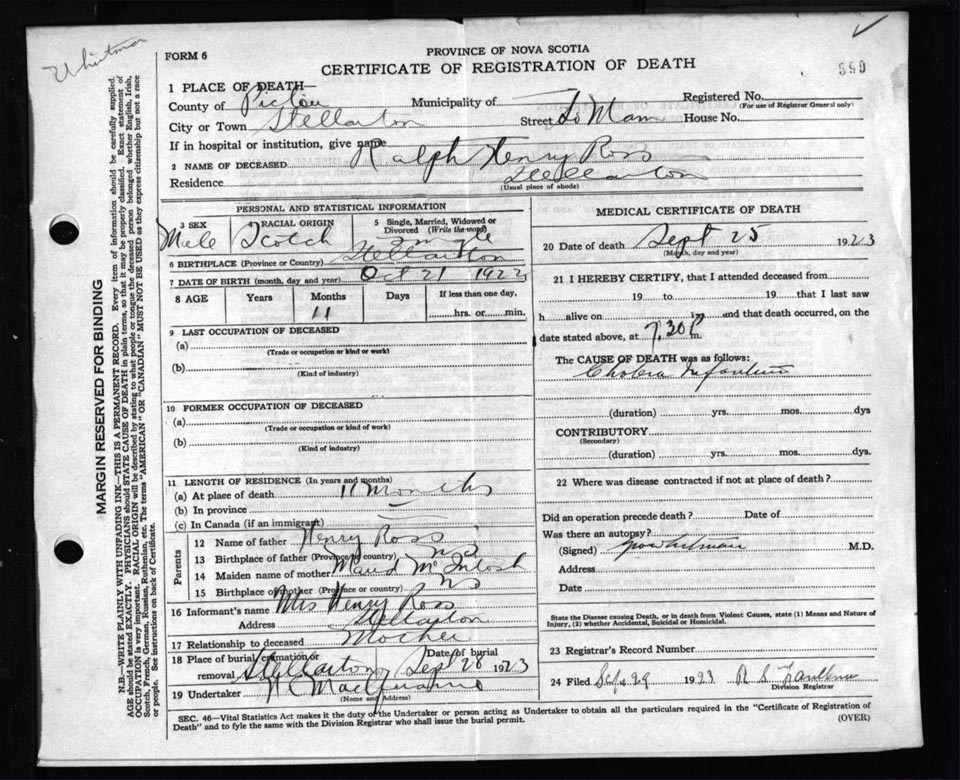 Whitman
FORM 6
PROVINCE OF NOVA SCOTIA
CERTIFICATE OF REGISTRATION OF DEATH
1 PLACE OF DEATH—
County of Pictou Municipality of Registered No.
(For use of Registrar General only)
City or Town Stellarton Street So Main House No.
If in hospital or institution, give name
2 NAME OF DECEASED Ralph Henry Ross
Residence Stellarton
(Usual place of abode)
PERSONAL AND STATISTICAL INFORMATION
3 SEX Male
RACIAL ORIGIN Scotch
5 Single, Married, Widowed or Divorced (Write the word) Single
6 BIRTHPLACE (Province or Country) Stellarton
7 DATE OF BIRTH (month, day and year) Oct 21 1922
8 AGE Years Months Days If less than one day,
11 hrs. or min.
9 LAST OCCUPATION OF DECEASED
(a)
(Trade or occupation or kind or work)
(b)
(Kind of industry)
10 FORMER OCCUPATION OF DECEASED
(a)
(Trade or occupation or kind of work)
(b)
(Kind of industry)
11 LENGTH OF RESIDENCE (In years and months)
(a) At place of death 11 months
(b) In province
(c) In Canada (if an immigrant)
Parents
12 Name of father Henry Ross
13 Birthplace of father (Province or country) NS
14 Maiden name of mother Maud McIntosh
15 Birthplace of mother (Province or country) NS
16 Informant's name Mrs Henry Ross
Address Stellarton
17 Relationship to deceased Mother
18 Place of burial, cremation or removal Stellarton Date of burial Sept 28 1923
19 Undertaker
(Name and Address)
MEDICAL CERTIFICATE OF DEATH
20 Date of death Sept 25 1923
(Month, day and year)
21 I HEREBY CERTIFY, that I attended deceased from
19 to 19 that I last saw
h alive on 19 and that death occurred, on the
date stated above, at 7.30 P m.
The CAUSE OF DEATH was as follows:
Cholera Infantum
(duration) yrs. mos. dys
CONTRIBUTORY
(Secondary)
(duration) yrs. mos. dys.
22 Where was disease contracted if not at place of death?
Did an operation precede death? Date of
Was there an autopsy?
(Signed) Whitman M.D.
Address
Date
State the Disease causing Death, or in death from Violent Causes, state (1) Means and Nature of
Injury, (2) whether Accidental, Suicidal or Homicidal.
23 Registrar's Record Number
24 Filed Sept 29 1923 R S
Division Registrar
SEC. 46—Vital Statistics Act makes it the duty of the Undertaker or person acting as Undertaker to obtain all the particulars required in the "Certificate of Registration of
Death" and to fyle the same with the Division Registrar who shall issue the burial permit.
(OVER)
MARGIN RESERVED FOR BINDING
N.B.—WRITE PLAINLY WITH UNFADING INK—THIS IS A PERMANENT RECORD. Every item of information should be carefully supplied.
AGE should be stated EXACTLY. PHYSICIANS should STATE CAUSE OF DEATH in plain terms, so that it may be properly classified. Exact statement of
OCCUPATION is very important. RACIAL ORIGIN will be described by stating to what people or tongue the deceased person belonged whether English, Irish,
Scotch, French, German, Russian, Ruthenian, etc. The terms "AMERICAN" OR "CANADIAN" MUST NOT BE USED as they express citizenship but not a race
or people. See instructions on back of Certificate.